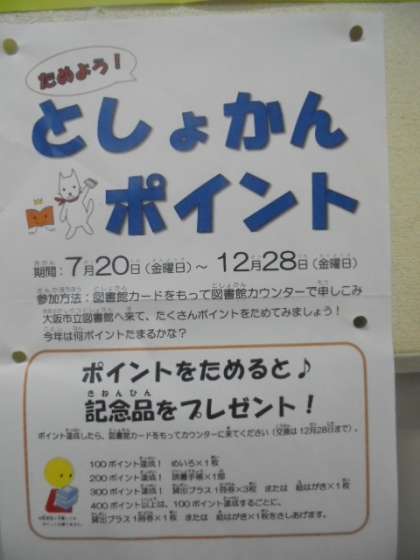 ためよう！
としょかん
ポイント
期間：7月20日（金曜日）～ 12月28日（金曜日）
参加方法：図書館カードをもって図書館カウンターで申しこみ
大阪市立図書館へ来て、たくさんポイントをためてみましょう！
今年は何ポイントたまるかな？
ポイントをためると♪
記念品をプレゼント！
ポイント達成したら、図書館カードをもってカウンターに来てください（交換は12月28日まで）。
100ポイント達成！ めいろ×1枚
200ポイント達成！ 読書手帳×1部
300ポイント達成！ 貸出プラス1冊券×3枚 または 絵はがき×1枚
400ポイント以上は、100ポイント達成するごとに、
貸出プラス1冊券×1枚 または 絵はがき×1枚をさしあげます。